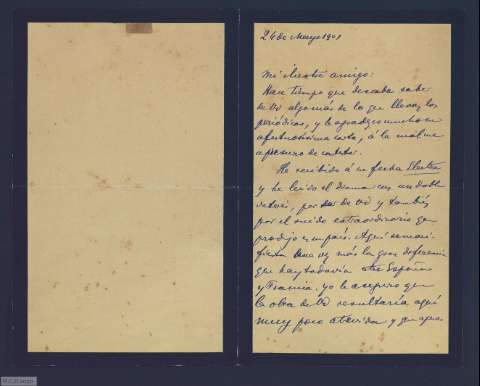 26 de Mayo 1901
Mi ilustre amigo:
Hace tiempo que deseaba saber
de Vd algo más de lo que llevan los
periódicos, y le agradezco mucho su
afectuosísima carta, á la cual me
apresuro de contestar.
He recibido á su fecha Electra
y he leído el drama con un doble
interés, por ser de Vd y también
por el ruido extraordinario que
produjo en su país. Aquí se mani-
fiesta una vez más la gran diferencia
que hay todavía entre España
y Francia. Yo le aseguro que
la obra de Vd resultaría aquí
muy poco atrevida y que apen